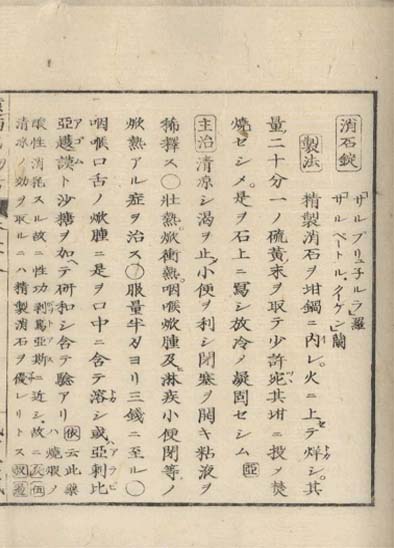 消石錠
「サルプリュチルラ」羅
「サルペートル、クーゲン」蘭
製法 精製消石ヲ坩鍋ニ内レ。火ニ上セテ烊シ。其
量二十分一ノ硫黄末ヲ取テ少許ヅヽ其坩ニ投メ焚
燒セシメ。是ヲ石上ニ寫シ放冷ノ凝固セシム 亞
主治 清凉シ渇ヲ止メ小便ヲ利シ閉塞ヲ開キ粘液ヲ
稀釋ス〇壯熱。焮衝熱。咽喉焮腫及ヒ淋疾小便閉等ノ
焮熱アル症ヲ治ス〇服量半ヨリ三錢ニ至ル〇
咽喉口舌ノ焮腫ニ是ヲ口中ニ含テ溶シ或ハ亞剌比
亞護謨ト沙糖ヲ加ヘテ研和シ含テ驗アリ 依云此藥ハ燒煆ノ
酸性消耗スル故ニ性功剥篤亞斯ニ近シ。故ニ
清凉ノ功ヲ取ルニハ精製消石ヲ優レリトス